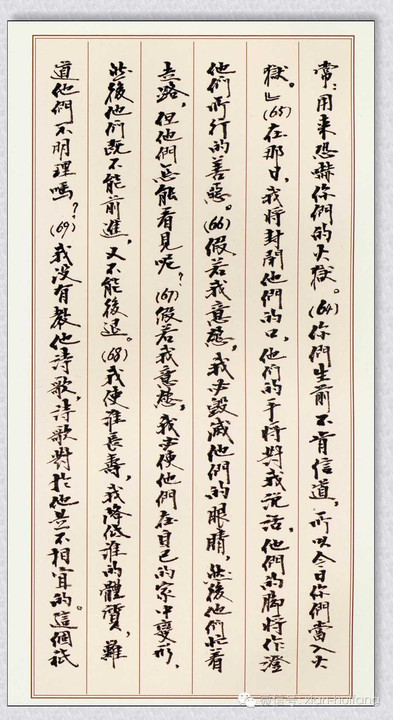 常:用来恐嚇你們的火獄。(64)你們生前不肯信道,所以今日你們當入火
獄。』(65)在那日,我將封閉他們的口,他们的手將對我说话,他們的脚將作澄
他們所行的善惡。(66)假若我意慾,我必毀滅他們的眼睛,然後他們忙着
去路,但他們怎能看見呢?(67)假若我意慾,我必使他們在自己的家中變形,
然後他们既不能前進,又不能後退。(68)我使谁長壽,我降低谁的體質,難
道他們不明理嗎?(69)我没有教他詩歌,詩歌對於他是不相宜的。這個祇
微信号: xian-huifang